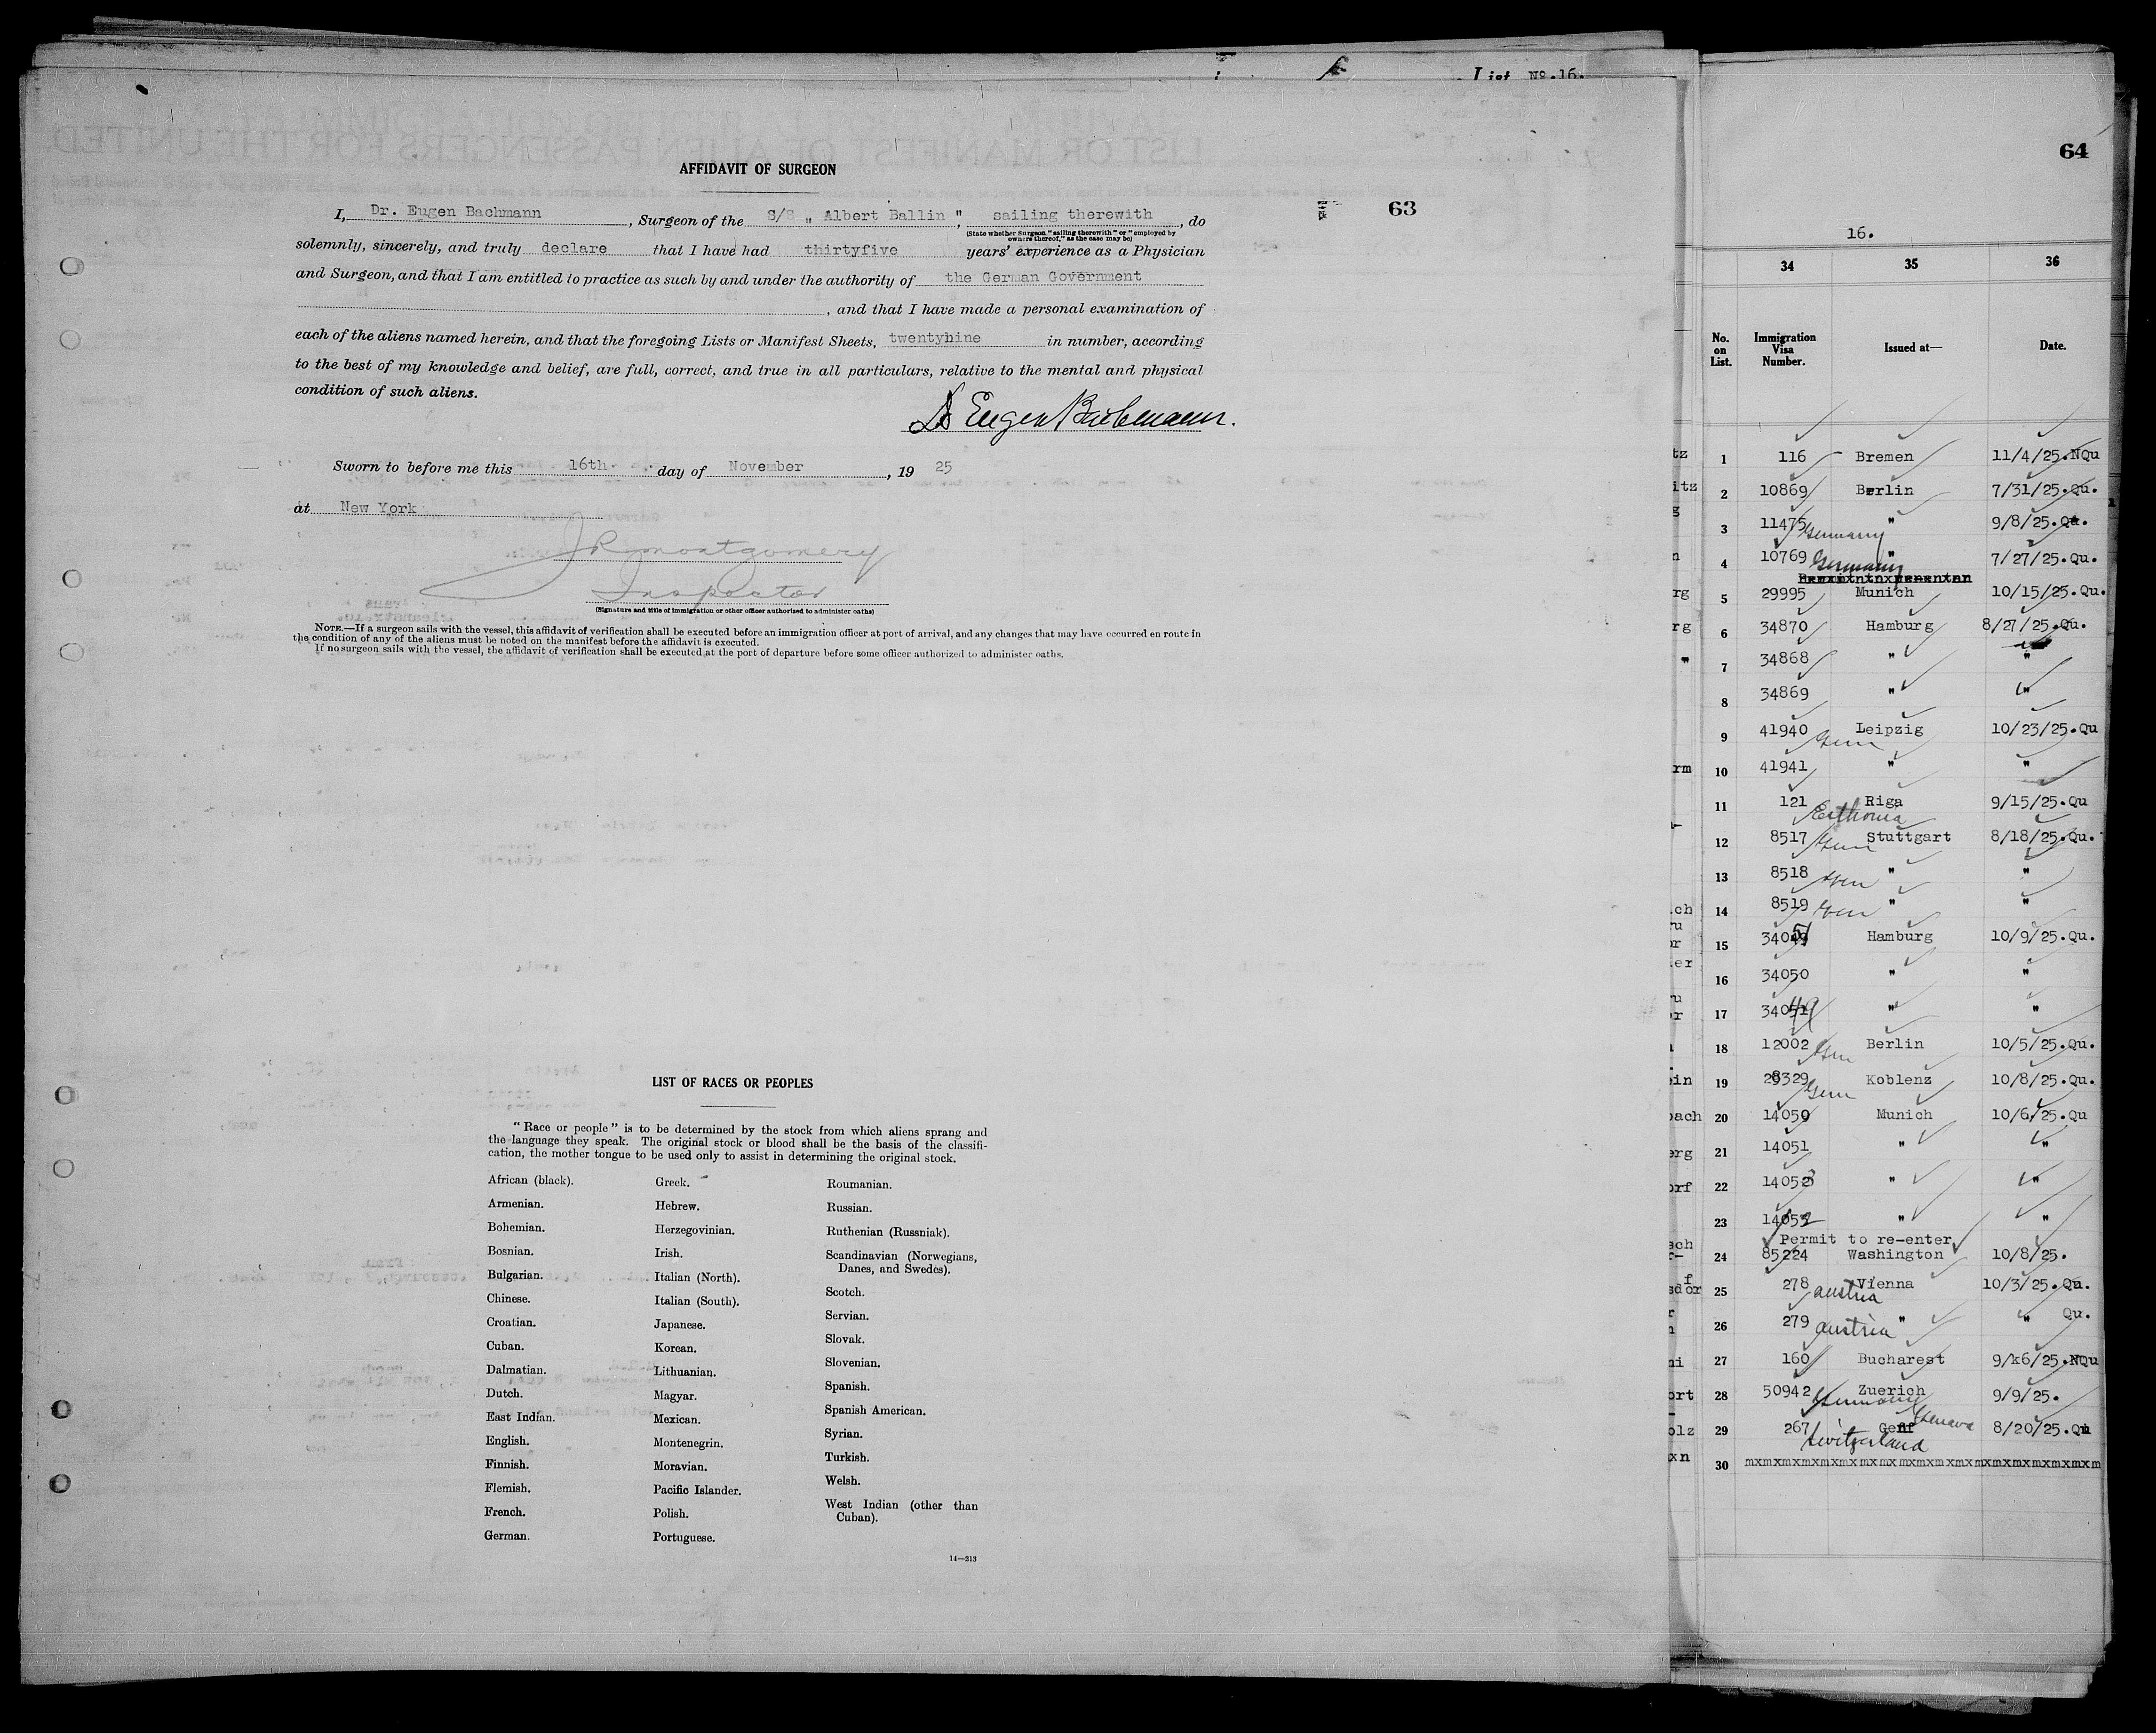 List No.16.
63
AFFIDAVIT OF SURGEON
I, Dr. Eugen Bachmann, Surgeon of the S/S " Albert Ballin ", sailing therewith, do
(State whether Surgeon "sailing therewith" or "employed by
owners thereof," as the case may be)
solemnly, sincerely, and truly declare that I have had thirtyfive years' experience as a Physician
and Surgeon, and that I am entitled to practice as such by and under the authority of the German Government
, and that I have made a personal examination of
each of the aliens named herein, and that the foregoing Lists or Manifest Sheets, twentyhine in number, according
to the best of my knowledge and belief, are full, correct, and true in all particulars, relative to the mental and physical
condition of such aliens.
Dr Eugen Bachmann.
Sworn to before me this 16th day of November, 19 25
at New York
J R Montgomery
Inspector
(Signature and title of immigration or other officer authorized to administer oaths)
NOTE.—If a surgeon sails with the vessel, this affidavit of verification shall be executed before an immigration officer at port of arrival, and any changes that may have occurred en route in
the condition of any of the aliens must be noted on the manifest before the affidavit is executed.
If no surgeon sails with the vessel, the affidavit of verification shall be executed at the port of departure before some officer authorized to administer oaths.
LIST OF RACES OR PEOPLES
"Race or people" is to be determined by the stock from which aliens sprang and
the language they speak. The original stock or blood shall be the basis of the classifi-
cation, the mother tongue to be used only to assist in determining the original stock.
African (black).
Armenian.
Bohemian.
Bosnian.
Bulgarian.
Chinese.
Croatian.
Cuban.
Dalmatian.
Dutch.
East Indian.
English.
Finnish.
Flemish.
French.
German.
Greek.
Hebrew.
Herzegovinian.
Irish.
Italian (North).
Italian (South).
Japanese.
Korean.
Lithuanian.
Magyar.
Mexican.
Montenegrin.
Moravian.
Pacific Islander.
Polish.
Portuguese.
Roumanian.
Russian.
Ruthenian (Russniak).
Scandinavian (Norwegians,
Danes, and Swedes).
Scotch.
Servian.
Slovak.
Slovenian.
Spanish.
Spanish American.
Syrian.
Turkish.
Welsh.
West Indian (other than
Cuban).
14—213
64
16.
34 35 36
No. on List. Immigration Visa Number. Issued at— Date.
1 116 Bremen 11/4/25.NQu
2 10869 Berlin 7/31/25.Qu.
3 11475 Germany " 9/8/25.Qu.
4 10769 Germany " 7/27/25.Qu.
5 29995 Munich 10/15/25.Qu.
6 34870 Hamburg 8/27/25.Qu.
7 34868 " "
8 34869 " "
9 41940 Germ Leipzig 10/23/25.Qu
10 41941 " "
11 121 Esthonia Riga 9/15/25.Qu
12 8517 Germ Stuttgart 8/18/25.Qu.
13 8518 Gem " "
14 8519 Gem " "
15 34051 Hamburg 10/9/25.Qu.
16 34050 " "
17 34049 " "
18 12002 Germ Berlin 10/5/25.Qu.
19 28329 Germ Koblenz 10/8/25.Qu.
20 14050 Munich 10/6/25.Qu
21 14051 " "
22 14053 " "
23 14052 " "
Permit to re-enter
24 85224 Washington 10/8/25.
25 278 Austria Vienna 10/3/25.Qu.
26 279 Austria " " Qu.
27 160 Bucharest 9/k6/25.NQu
28 50942 Germany Zuerich 9/9/25.
29 267 Switzerland Genf Geneva 8/20/25.Qu
30 mxmxmxmxmxmxmxmxmxmxmxmxmxmxmxmxmxm